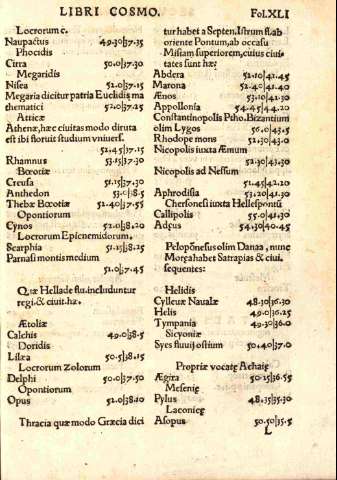 LIBRI COSMO. Fol.XLI
Locrorum c.
Naupactus 49.30|37.35
Phocidis
Cirra 50.0|37.30
Megaridis
Nisea 52.0|37.15
Megaria dicitur patria Euclidis ma
thematici 52.0|37.25
Atticæ
Athenæ, hæc ciuitas modo diruta
est ibi floruit studium vniuers.
52.45|37.15
Rhamnus 53.15|37.30
Bœotiæ
Creusa 51.15|37.30
Anthedon 53.0|38.5
Thebæ Bœotiæ 52.40|37.55
Opontiorum
Cynos 52.0|38.20
Locrorum Epicnemidorum.
Scarphia 51.15|38.25
Parnasi montis medium
52.0|37.45
Quæ Hellade flu. includuntur
regi. & ciuit. hæ.
Ætoliæ
Calchis 49.0|38.5
Doridis
Lilæa 50.5|38.15
Locrorum Zolorum
Delphi 50.0|37.50
Opontiorum
Opus 52.0|38.10
Thracia quæ modo Græcia dici
tur habet a Septen. Istrum fl. ab
oriente Pontum, ab occasu
Misiam superiorem, cuius ciui
tates sunt hæ:
Abdera 52.10|41.45
Marona 52.40|41.40
Ænos 53.10|41.30
Appollonia 54.45|44.20
Constantinopolis Ptho. Bizantium
olim Lygos 56.0|43.5
Rhodope mons 52.30|43.0
Nicopolis iuxta Æmum
52.30|43.30
Nicopolis ad Nessum
51.45|42.20
Aphrodisia 53.20|41.30
Chersonesi iuxta Hellesponti
Callipolis 55.0|41.30
54.30|40.45
Peloponesus olim Danaa, nunc
Morea habet Satrapias & ciui.
sequentes:
Helidis
Cylleux Naualæ 48.30|36.30
Helis 49.0|36.25
Tympania 49.30|36.0
Sicyoniæ
Syes fluuij ostium 50.40|37.0
Propriæ vocatæ Achaiæ
Ægira 50.15|36.55
Meseniæ
Pylus 48.35|35.30
Laconicæ
Asopus 50.50|35.5
L